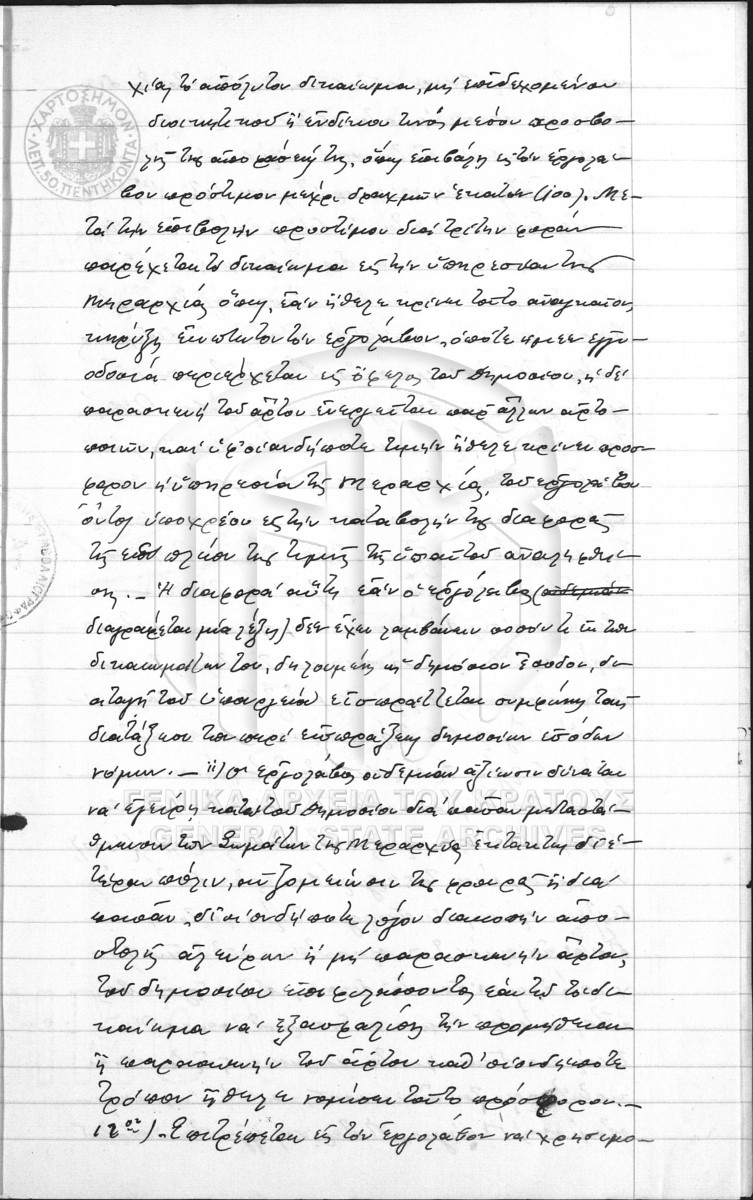 χίας τὸ ἀπόλυτον δικαίωμα, μὴ ἐπιδεχομένου
διοικητικοῦ ἢ ἐνδίκου τινὸς μέσου προσβο-
λῆς τῆς ἀποφάσεώς της, ὅπως ἐπιβάλῃ εἰς τὸν ἐργολά-
βον πρόστιμον μέχρι δραχμῶν ἑκατὸν (100). Με-
τὰ τὴν ἐπιβολὴν προστίμου διὰ τρίτην φορὰν
παρέχεται τὸ δικαίωμα εἰς τὴν ὑπηρεσίαν τῆς
Μεραρχίας ὅπως, ἐὰν ἤθελε κρίνει τοῦτο ἀναγκαῖον,
κηρύξῃ ἔκπτωτον τὸν ἐργολάβον, ὁπότε ἡ μὲν ἐγγυ-
οδοσία περιέρχεται εἰς ὄφελος τοῦ Δημοσίου, ἡ δὲ
παρασκευὴ τοῦ ἄρτου ἐνεργεῖται παρ' ἄλλων ἀρτο-
ποιῶν, καὶ ὑφ' οἱανδήποτε τιμὴν ἤθελε κρίνει πρόσ-
φορον ἡ ὑπηρεσία τῆς Μεραρχίας, τοῦ ἐργολάβου
ὄντος ὑποχρέου εἰς τὴν καταβολὴν τῆς διαφορᾶς
τῆς ἐπὶ πλέον τῆς τιμῆς τῆς ὑπ' αὐτοῦ ἀναληφθεί-
σης. – Ἡ διαφορὰ αὕτη ἐὰν ὁ ἐργολάβος (οὐδεμίαν
διαγράφεται μία λέξις) δὲν ἔχει λαμβάνειν ποσόν τι ἐκ τῶν
δικαιωμάτων του, δηλουμένη ὡς δημόσιον ἔσοδον, δι-
αταγῇ τοῦ Ὑπουργείου εἰσπράττεται συμφώνως ταῖς
διατάξεσι τῶν περὶ εἰσπράξεως δημοσίων ἐσόδων
νόμων. – 11) Ὁ ἐργολάβος οὐδεμίαν ἀξίωσιν δύναται
νὰ ἐγείρῃ κατὰ τοῦ Δημοσίου διὰ πᾶσαν μεταστά-
θμευσιν τῶν Σωμάτων τῆς Μεραρχίας ἐκτάκτως δι' ἑ-
τέραν πόλιν, αὐξομείωσιν τῆς φρουρᾶς ἢ διὰ
πᾶσαν, δι' οἱονδήποτε λόγον διακοπὴν ἀπο-
στολῆς ἀλεύρων ἢ μὴ παρασκευὴν ἄρτου,
τοῦ δημοσίου ἐπιφυλάσσοντος ἑαυτῷ τὸ δι-
καίωμα νὰ ἐξασφαλίσῃ τὴν προμήθειαν
ἢ παρασκευὴν τοῦ ἄρτου καθ' οἱονδήποτε
τρόπον ἤθελε νομίσει τοῦτο πρόσφορον. –
12ον). Ἐπιτρέπεται εἰς τὸν ἐργολάβον νὰ χρησιμο-
ΧΑΡΤΟΣΗΜΟΝ
ΛΕΠ. 50. ΠΕΝΤΗΚΟΝΤΑ
ΓΕΝΙΚΑ ΑΡΧΕΙΑ ΤΟΥ ΚΡΑΤΟΥΣ
GENERAL STATE ARCHIVES